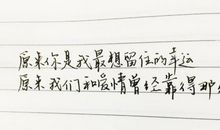 原来你是我最想留住的幸运
原来我们和爱情曾经靠得那